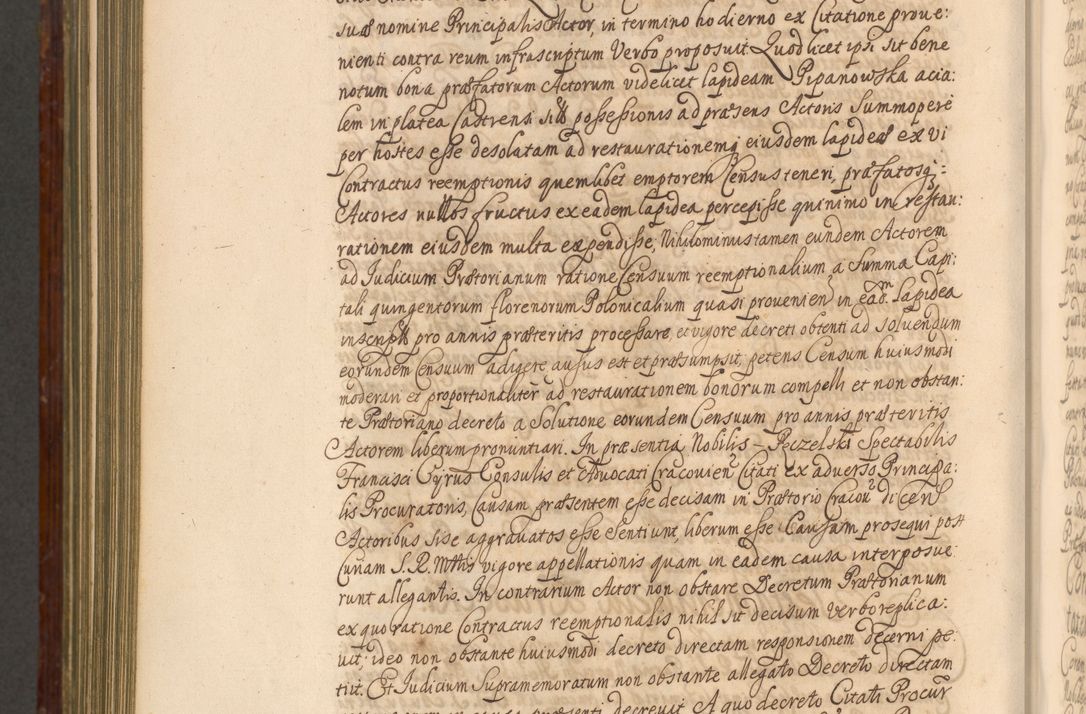 suas nomine Principalis Actor, in termino hodierno ex Citatione prove:
nienti contra reum infrascriptum Verbo proposuit. Quod licet ipsi sit bene
notum bona præfatorum Actorum videlicet lapideam Pipanowska acia:
lem in platea Castrensi sitt possessionis ad præsens Actoris Summoperè
per hostes esse desolatam ad restaurationemq eiusdem lapideæ ex vi
Contractus reemptionis quemlibet emptorem Census teneri, præfatosq:
Actores nullos fructus ex eadem lapidea percepisse quinimo in restau:
rationem eiusdem multa expendisse, Nihilominus tamen eundem Actorem
ad Judicium Prætorianum ratione Censuum reemptionalium a Summa Capi:
tali quingentorum florenorum Polonicalium quasi provenien in eadm Lapidea
inscriptt pro annis præteritis processare, et vigore decreti obtenti ad solvendum
eorundem Censuum adigere ausus est et præsumpsit, petens Censum huiusmodi
moderari et proportionaliter ad restaurationem bonorum compelli et non obstan:
te Prætoriano decreto a Solutione eorundem Censuum pro annis præteritis
Actorem liberum pronuntiari. In præsentia Nobilis Peczelski Spectabilis
Francisci Cyrus Consulis et Advocati Cracovien Citati ex adverso Principa:
lis Procuratoris, Causam præsentem esse decisam in Prætorio Cracov dicen
Actoribus si se aggravatos esse sentiunt, liberum esse Causam prosequi post
Curiam S. R. Mttis vigore appellationis quam in eadem causa interposue:
runt allegantis. In contrarium Actor non obstare Decretum Prætorianum
ex quo ratione Contractus reemptionalis nihil sit decisum verbo replica:
vit, ideo non obstante huiusmodi decreto directam responsionem decerni pe:
tiit. Et Judicium Supramemoratum non obstante allegato Decreto directam
decrevit. A quo decreto Citati Procur